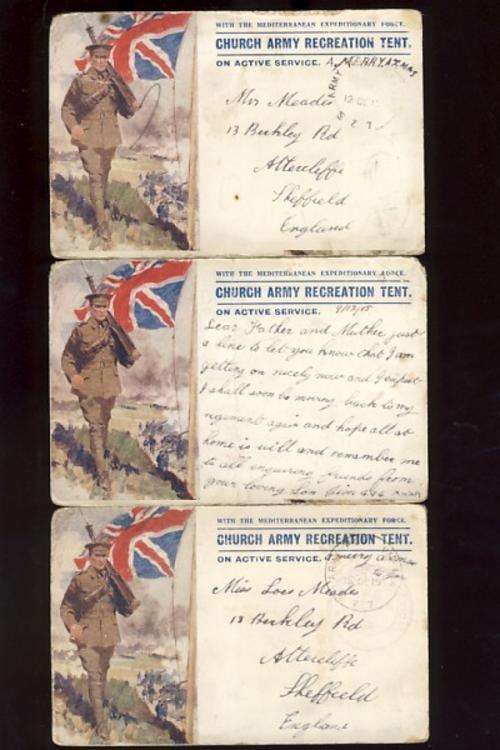 WITH THE MEDITERRANEAN EXPEDITIONARY FORCE.
CHURCH ARMY RECREATION TENT.
ON ACTIVE SERVICE. A MERRY XMAS
ARMY
Mrs Meades
13 Berkley Rd
Attercliffe
Sheffield
England
WITH THE MEDITERRANEAN EXPEDITIONARY FORCE.
CHURCH ARMY RECREATION TENT.
ON ACTIVE SERVICE. 9/12/15
Dear Father and Mother just
a line to let you know that I am
getting on nicely now and I expect
I shall soon be moving back to my
regiment again and hope all at
home is well and remember me
to all enquiring friends from
your loving Son
WITH THE MEDITERRANEAN EXPEDITIONARY FORCE.
CHURCH ARMY RECREATION TENT.
ON ACTIVE SERVICE. A merry Xmas
Miss Meades
13 Berkley Rd
Attercliffe
Sheffield
England